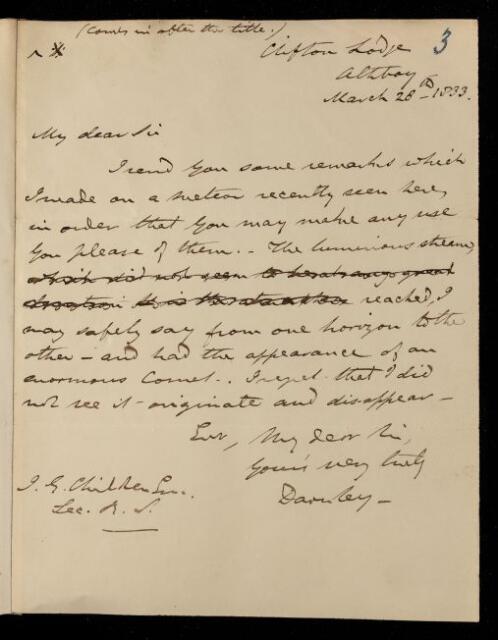 (Comes in after the title.)
^ *
3
Clifton Lodge
Athboy
March 28th 1833.
My dear Sir
I send you some remarks which
I made on a meteor recently seen here,
in order that you may make any use
you please of them. - The luminious stream,
which did not seem to be at any great
reached, I
may safely say from one horizon to the
other - and had the appearance of an
enormous Comet. . I regret that I did
not see it originate and disappear -
Ever, My dear Sir,
Your's very truly
Darnley -
J. G. Children Esqr.
Sec. R. S.